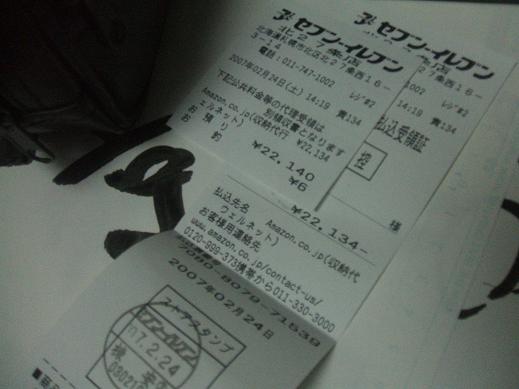 セブン-イレブン
北海道札幌市北区北27条西16-
3-14
電話:011-747-1002 レジ#2
2007年02月24日(土) 14:19 責134
下記公共料金等の代理受領は
別領収書となります
Amazon.co.jp(収納代行
ェルネット) ¥22,134
お預り ¥22,140
釣 ¥6
セブン-イレブン
7条西16-
1002 レジ#2
14:19 責134
払込受領証
控
様
¥22,134-
払込先名 Amazon.co.jp(収納代
ウェルネット)
お客様用連絡先
www.amazon.co.jp/contact-us/
0120-999-373携帯から011-330-3000
7080-8079-71539
2007年02月24日
ストアスタンプ
セブン-イレブン
07.2.24